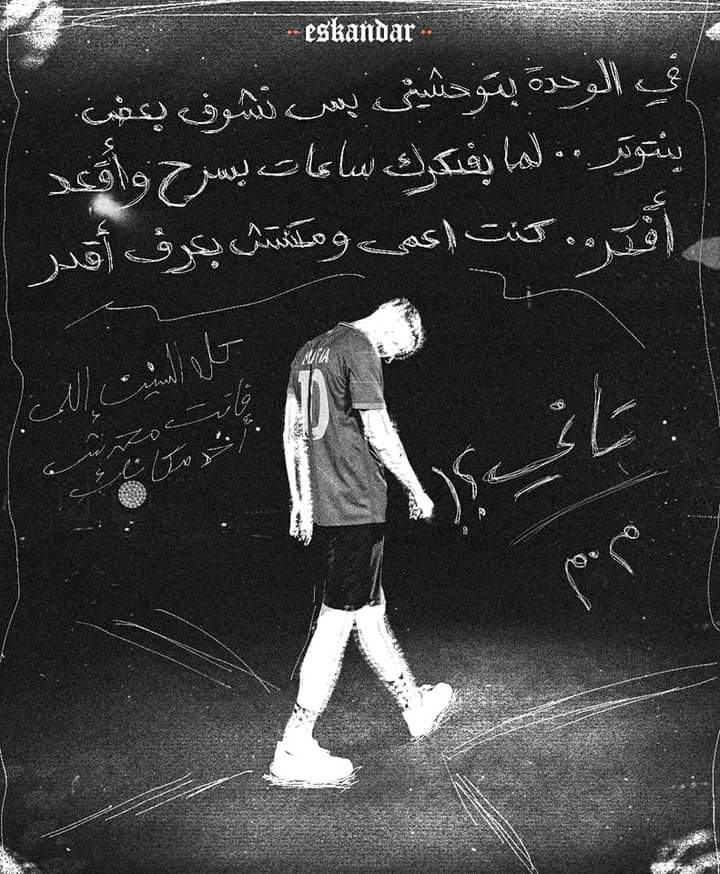 eskandar
في الوحدة بتوحشيني بس نشوف بعض
بنتوتر .. لما بفتكرك ساعات بسرح وأقعد
أفكر .. كنت اعمى ومكنتش بعرف أقدر
كل السنين اللي
فاتت معرفتش
أخد مكانك
تاني ؟!
م.م
MAFIA
10